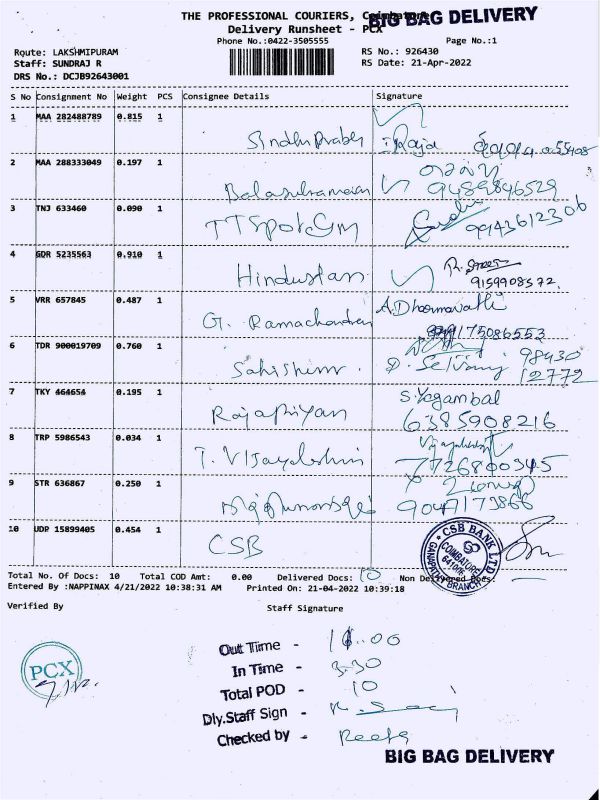 THE PROFESSIONAL COURIERS, Coimbatore
BIG BAG DELIVERY
Delivery Runsheet - PCX
Phone No.:0422-3505555
Page No.:1
Route: LAKSHMIPURAM
RS No.: 926430
Staff: SUNDRAJ R
RS Date: 21-Apr-2022
DRS No.: DCJB92643001
S No Consignment No Weight PCS Consignee Details Signature
1 MAA 282488789 0.815 1
Raja
2 MAA 288333049 0.197 1
Balasubramanian 9489846529
3 TNJ 633460 0.090 1
TTSpotGm 9943612306
4 GDR 5235563 0.910 1
Hindustan
9159908572.
5 VRR 657845 0.487 1
A.Dharmavathi
G. Ramachandran
75086553
6 TDR 900019709 0.760 1
98430
12772
7 TKY 464654 0.195 1
S.Yogambal
Rajapriyan 6385908216
8 TRP 5986543 0.034 1
T. Vijayalashmi 7726800345
9 STR 636867 0.250 1
9047173866
10 UDP 15899405 0.454 1
CSB
CSB BANK LTD
COIMBATORE
GANAPATHY BRANCH
Total No. Of Docs: 10 Total COD Amt: 0.00 Delivered Docs: 10 Non Delivered Docs:
Entered By :NAPPINAX 4/21/2022 10:38:31 AM Printed On: 21-04-2022 10:39:18
Verified By Staff Signature
PCX
Out Time - 11.00
In Time - 3.30
Total POD - 10
Dly.Staff Sign -
Checked by - Reeta
BIG BAG DELIVERY